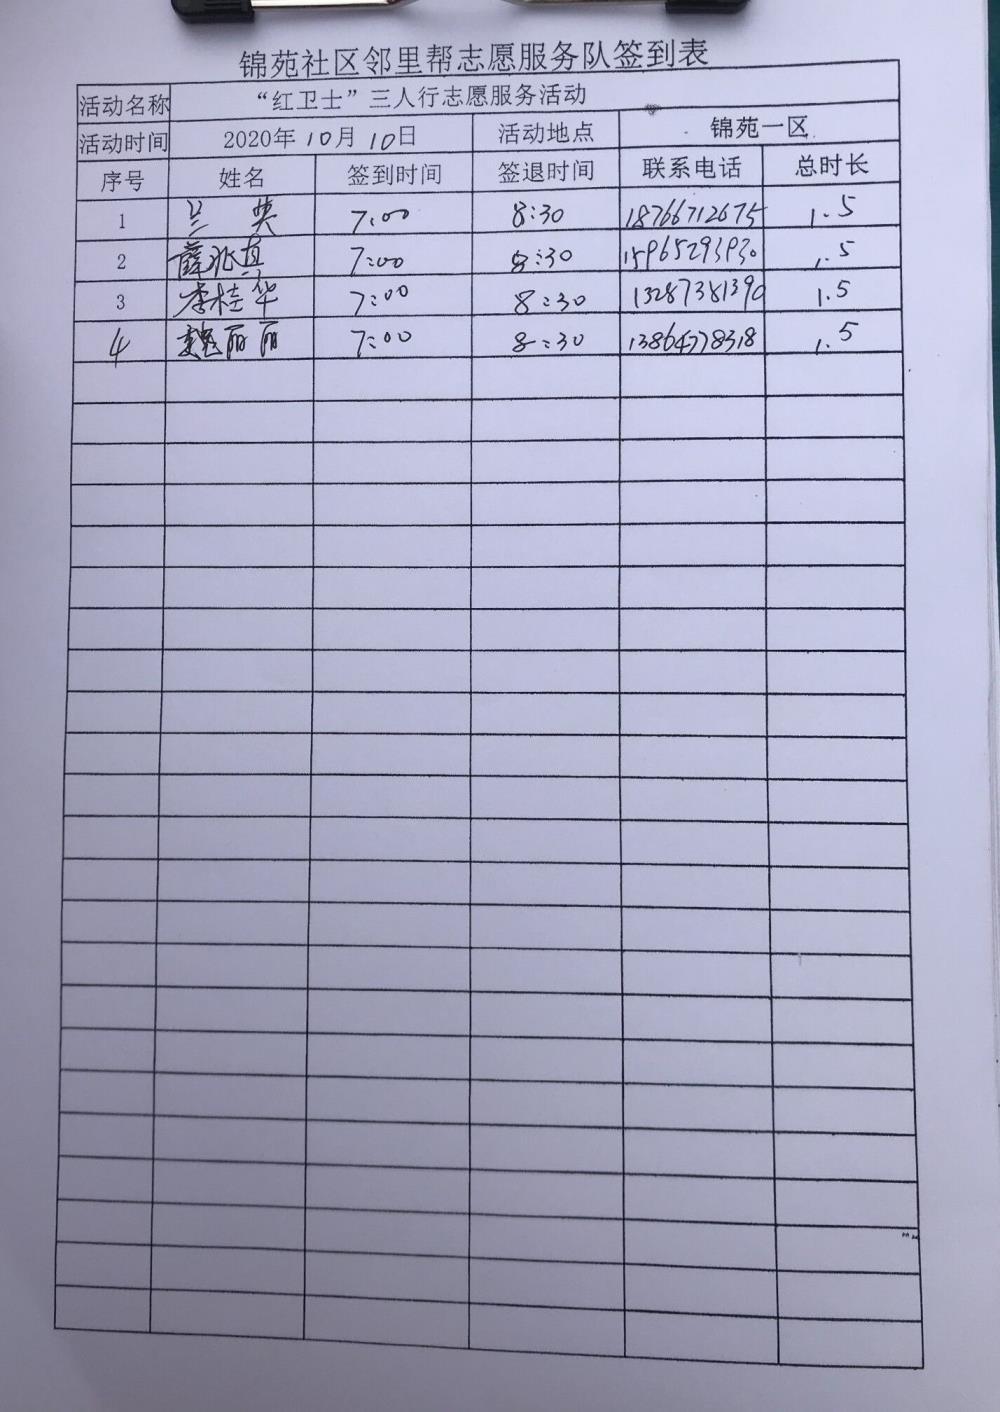 锦苑社区邻里帮志愿服务队签到表
活动名称 “红卫士”三人行志愿服务活动
活动时间 2020年10月10日 活动地点 锦苑一区
序号 姓名 签到时间 签退时间 联系电话 总时长
1 兰英 7:00 8:30 18766712675 1.5
2 薛兆真 7:00 8:30 15965293930 1.5
3 李桂华 7:00 8:30 13287381390 1.5
4 魏丽丽 7:00 8:30 13864778318 1.5